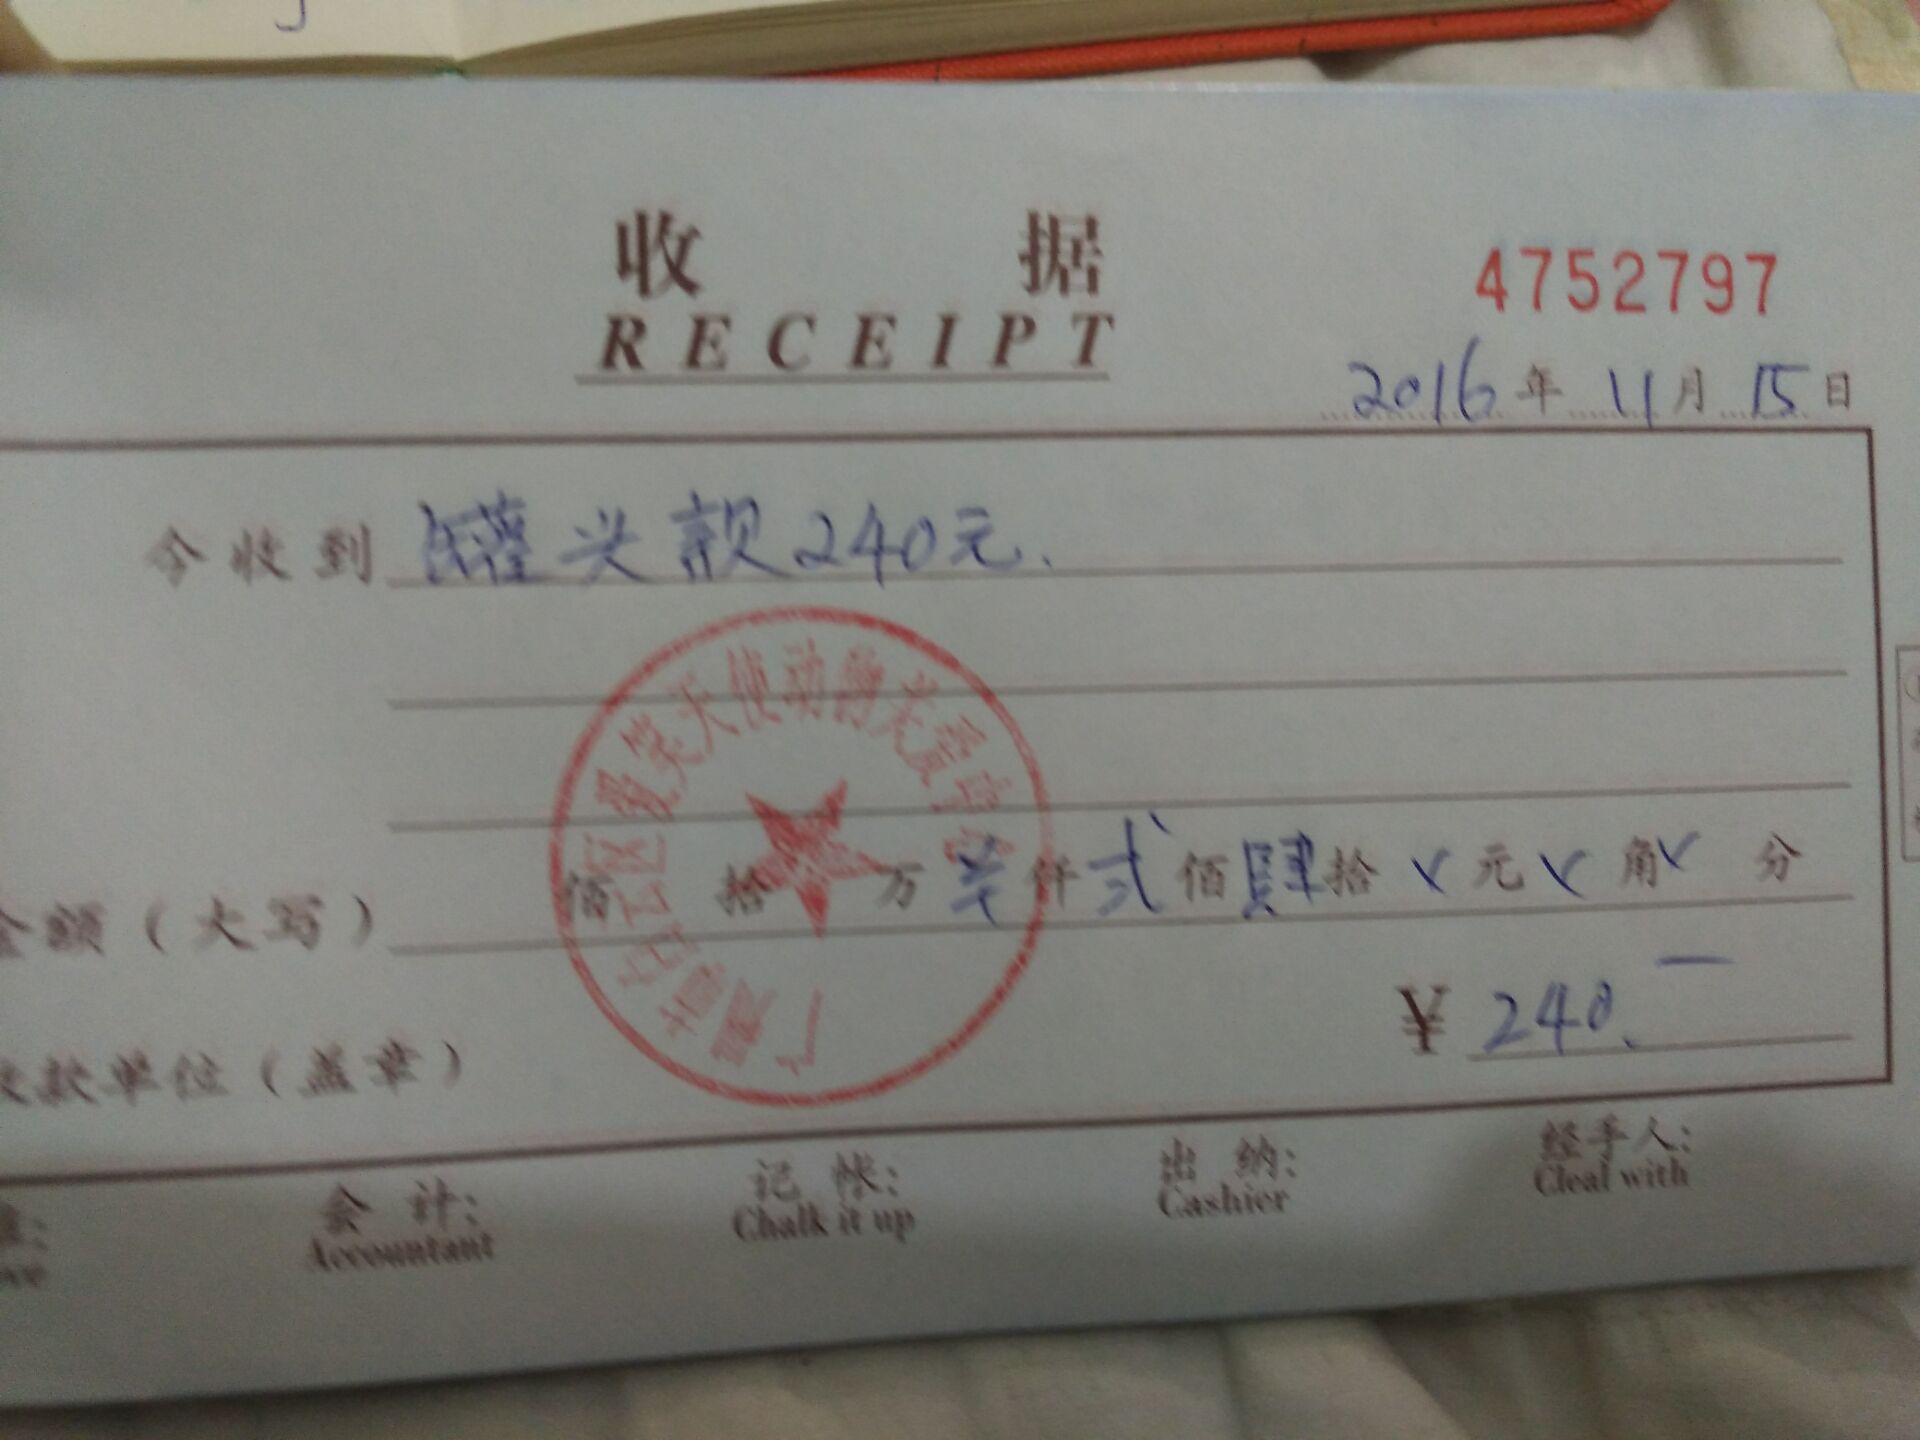 收据
RECEIPT
4752797
2016年11月15日
今收到 罐头款240元.
佰 拾 万 仟 贰 佰 肆 拾 元 角 分
金额(大写)
¥ 240.一
收款单位(盖章)
会计: 记帐: 出纳: 经手人:
Accountant Chalk it up Cashier Cleal with